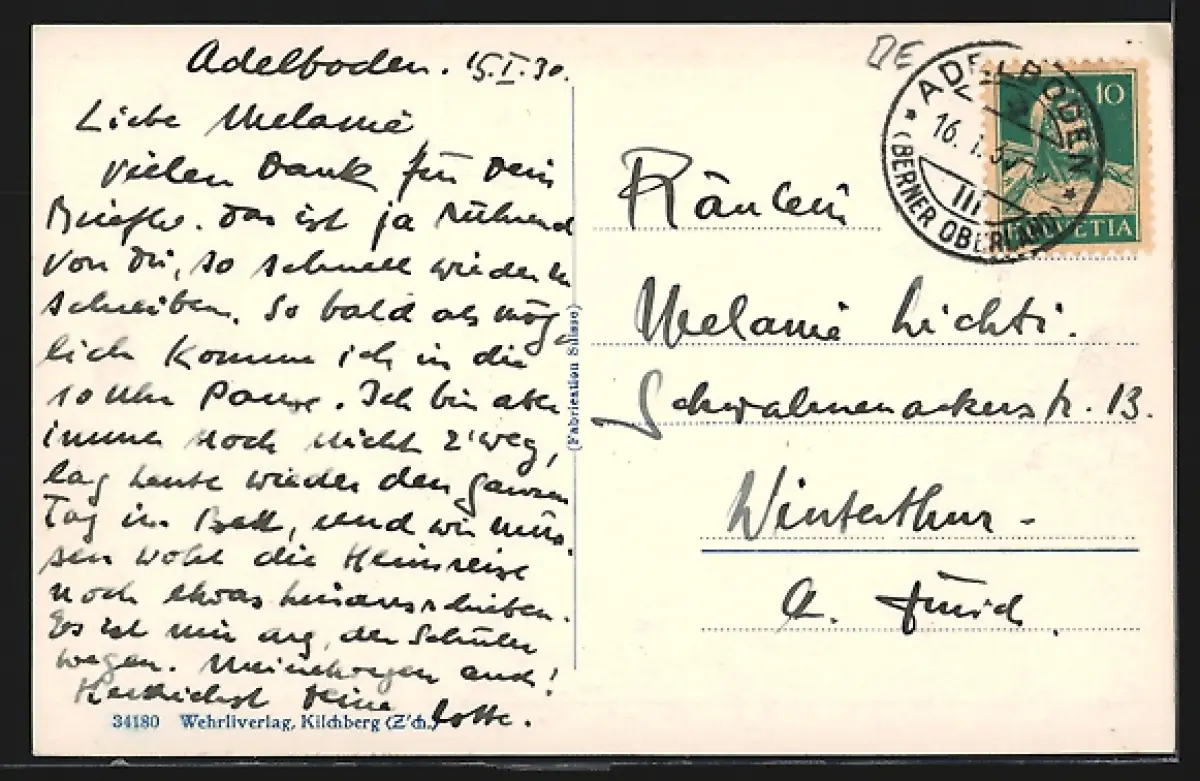 Adelboden. 15.I.30.
Liebe Melanie
Vielen Dank für Dein
Briefle. Das ist ja rührend
von Dir, so schnell wieder zu
schreiben. So bald als mög-
lich komme ich in die
10 Uhr Pause. Ich bin aber
immer noch nicht z'weg,
lag heute wieder den ganzen
Tag im Bett, und wir müs-
sen wohl die Heimreise
noch etwas hinausschieben.
Es ist mir arg, der Schüler
wegen. Meinetwegen auch!
Herzlichst Deine Lotte.
34180 Wehrliverlag, Kilchberg (Z'ch.)
(Fabrication Suisse)
ADELBODEN
16. I. 30
III
(BERNER OBERLAND)
10
HELVETIA
Fräulein
Melanie Lichti.
Schwalmenackerstr. 13.
Winterthur -
Kt. Zürich.